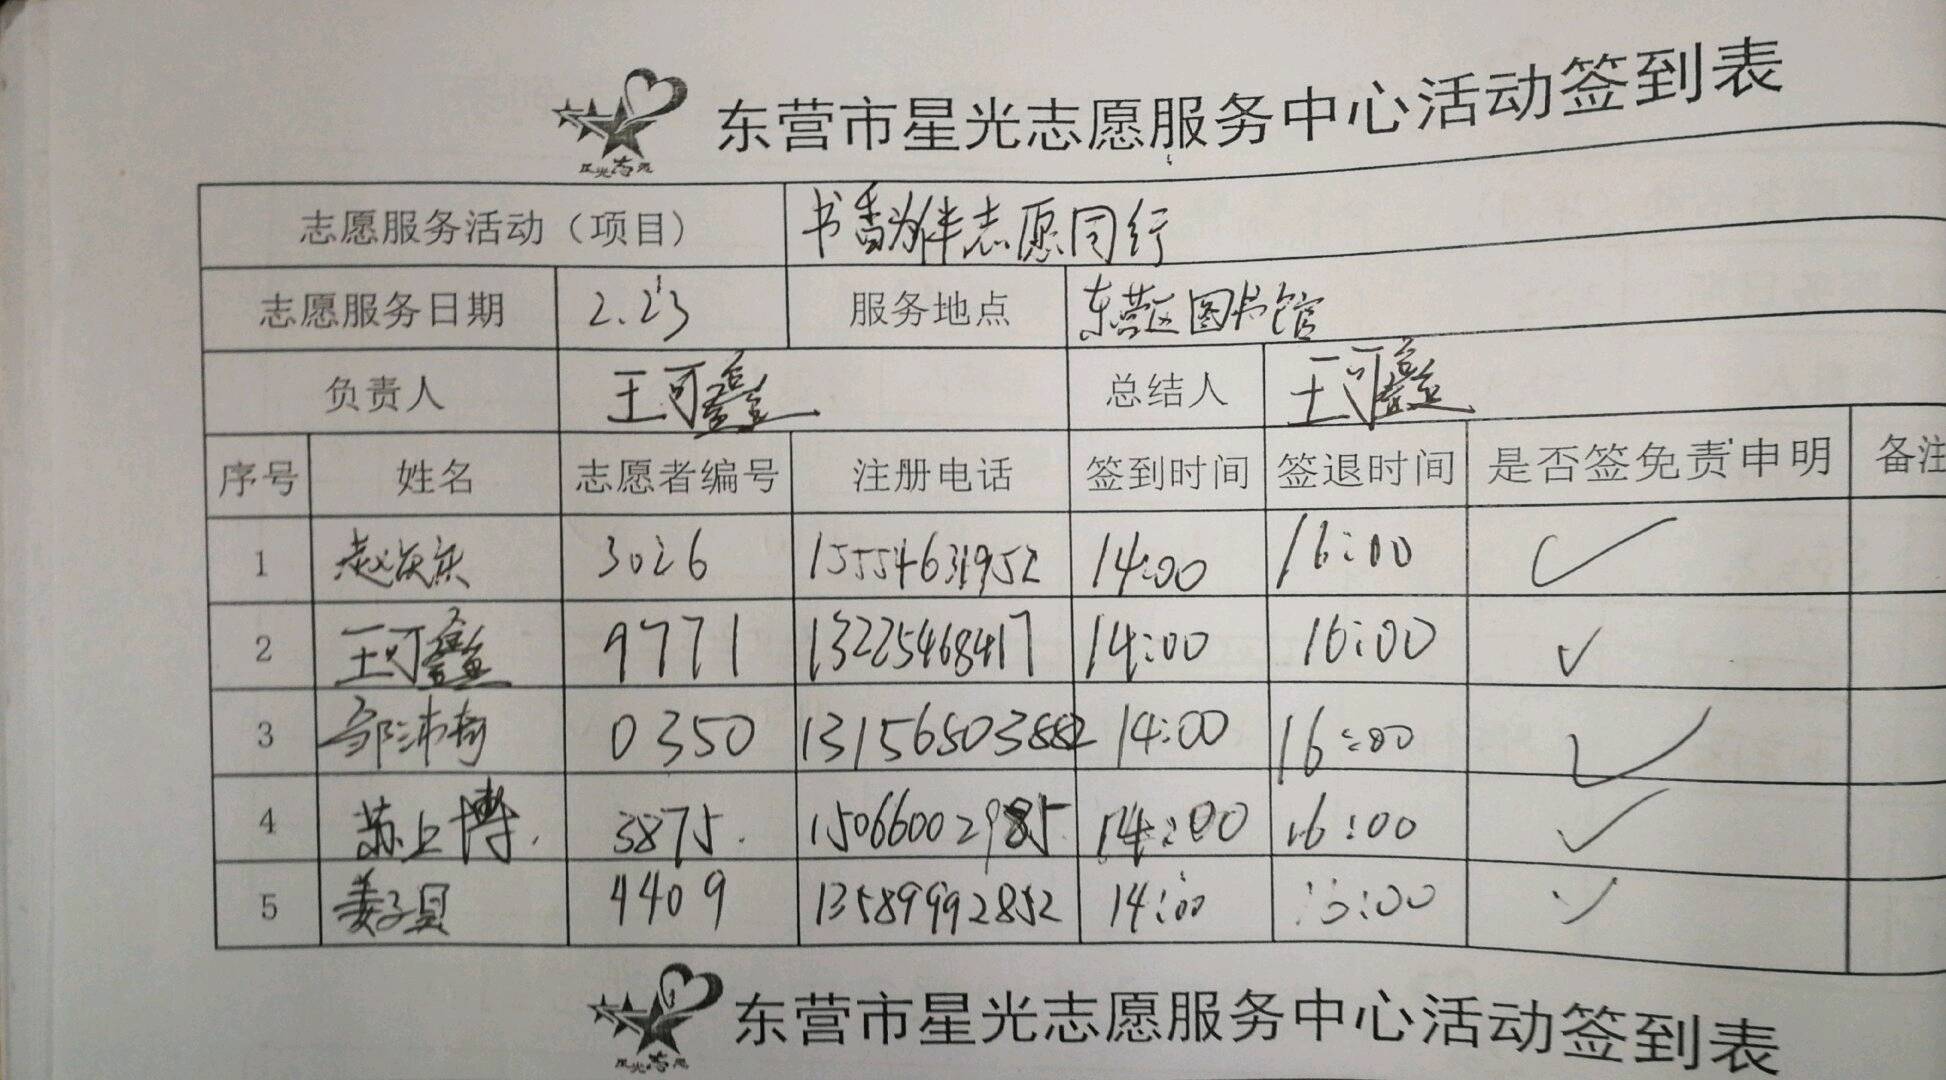 东营市星光志愿服务中心活动签到表
星光志愿
志愿服务活动（项目） 书香为伴志愿同行
志愿服务日期 2.23 服务地点 东营区图书馆
负责人 王可鑫 总结人 王可鑫
序号 姓名 志愿者编号 注册电话 签到时间 签退时间 是否签免责申明 备注
1 赵 3026 15554631952 14:00 16:00 ✓
2 王可鑫 9771 13225468417 14:00 16:00 ✓
3 邹沛 0350 13156503882 14:00 16:00 ✓
4 苏上博. 3875. 15066002985. 14:00 16:00 ✓
5 姜子贝 4409 13589992852 14:00 :00 ✓
东营市星光志愿服务中心活动签到表
星光志愿